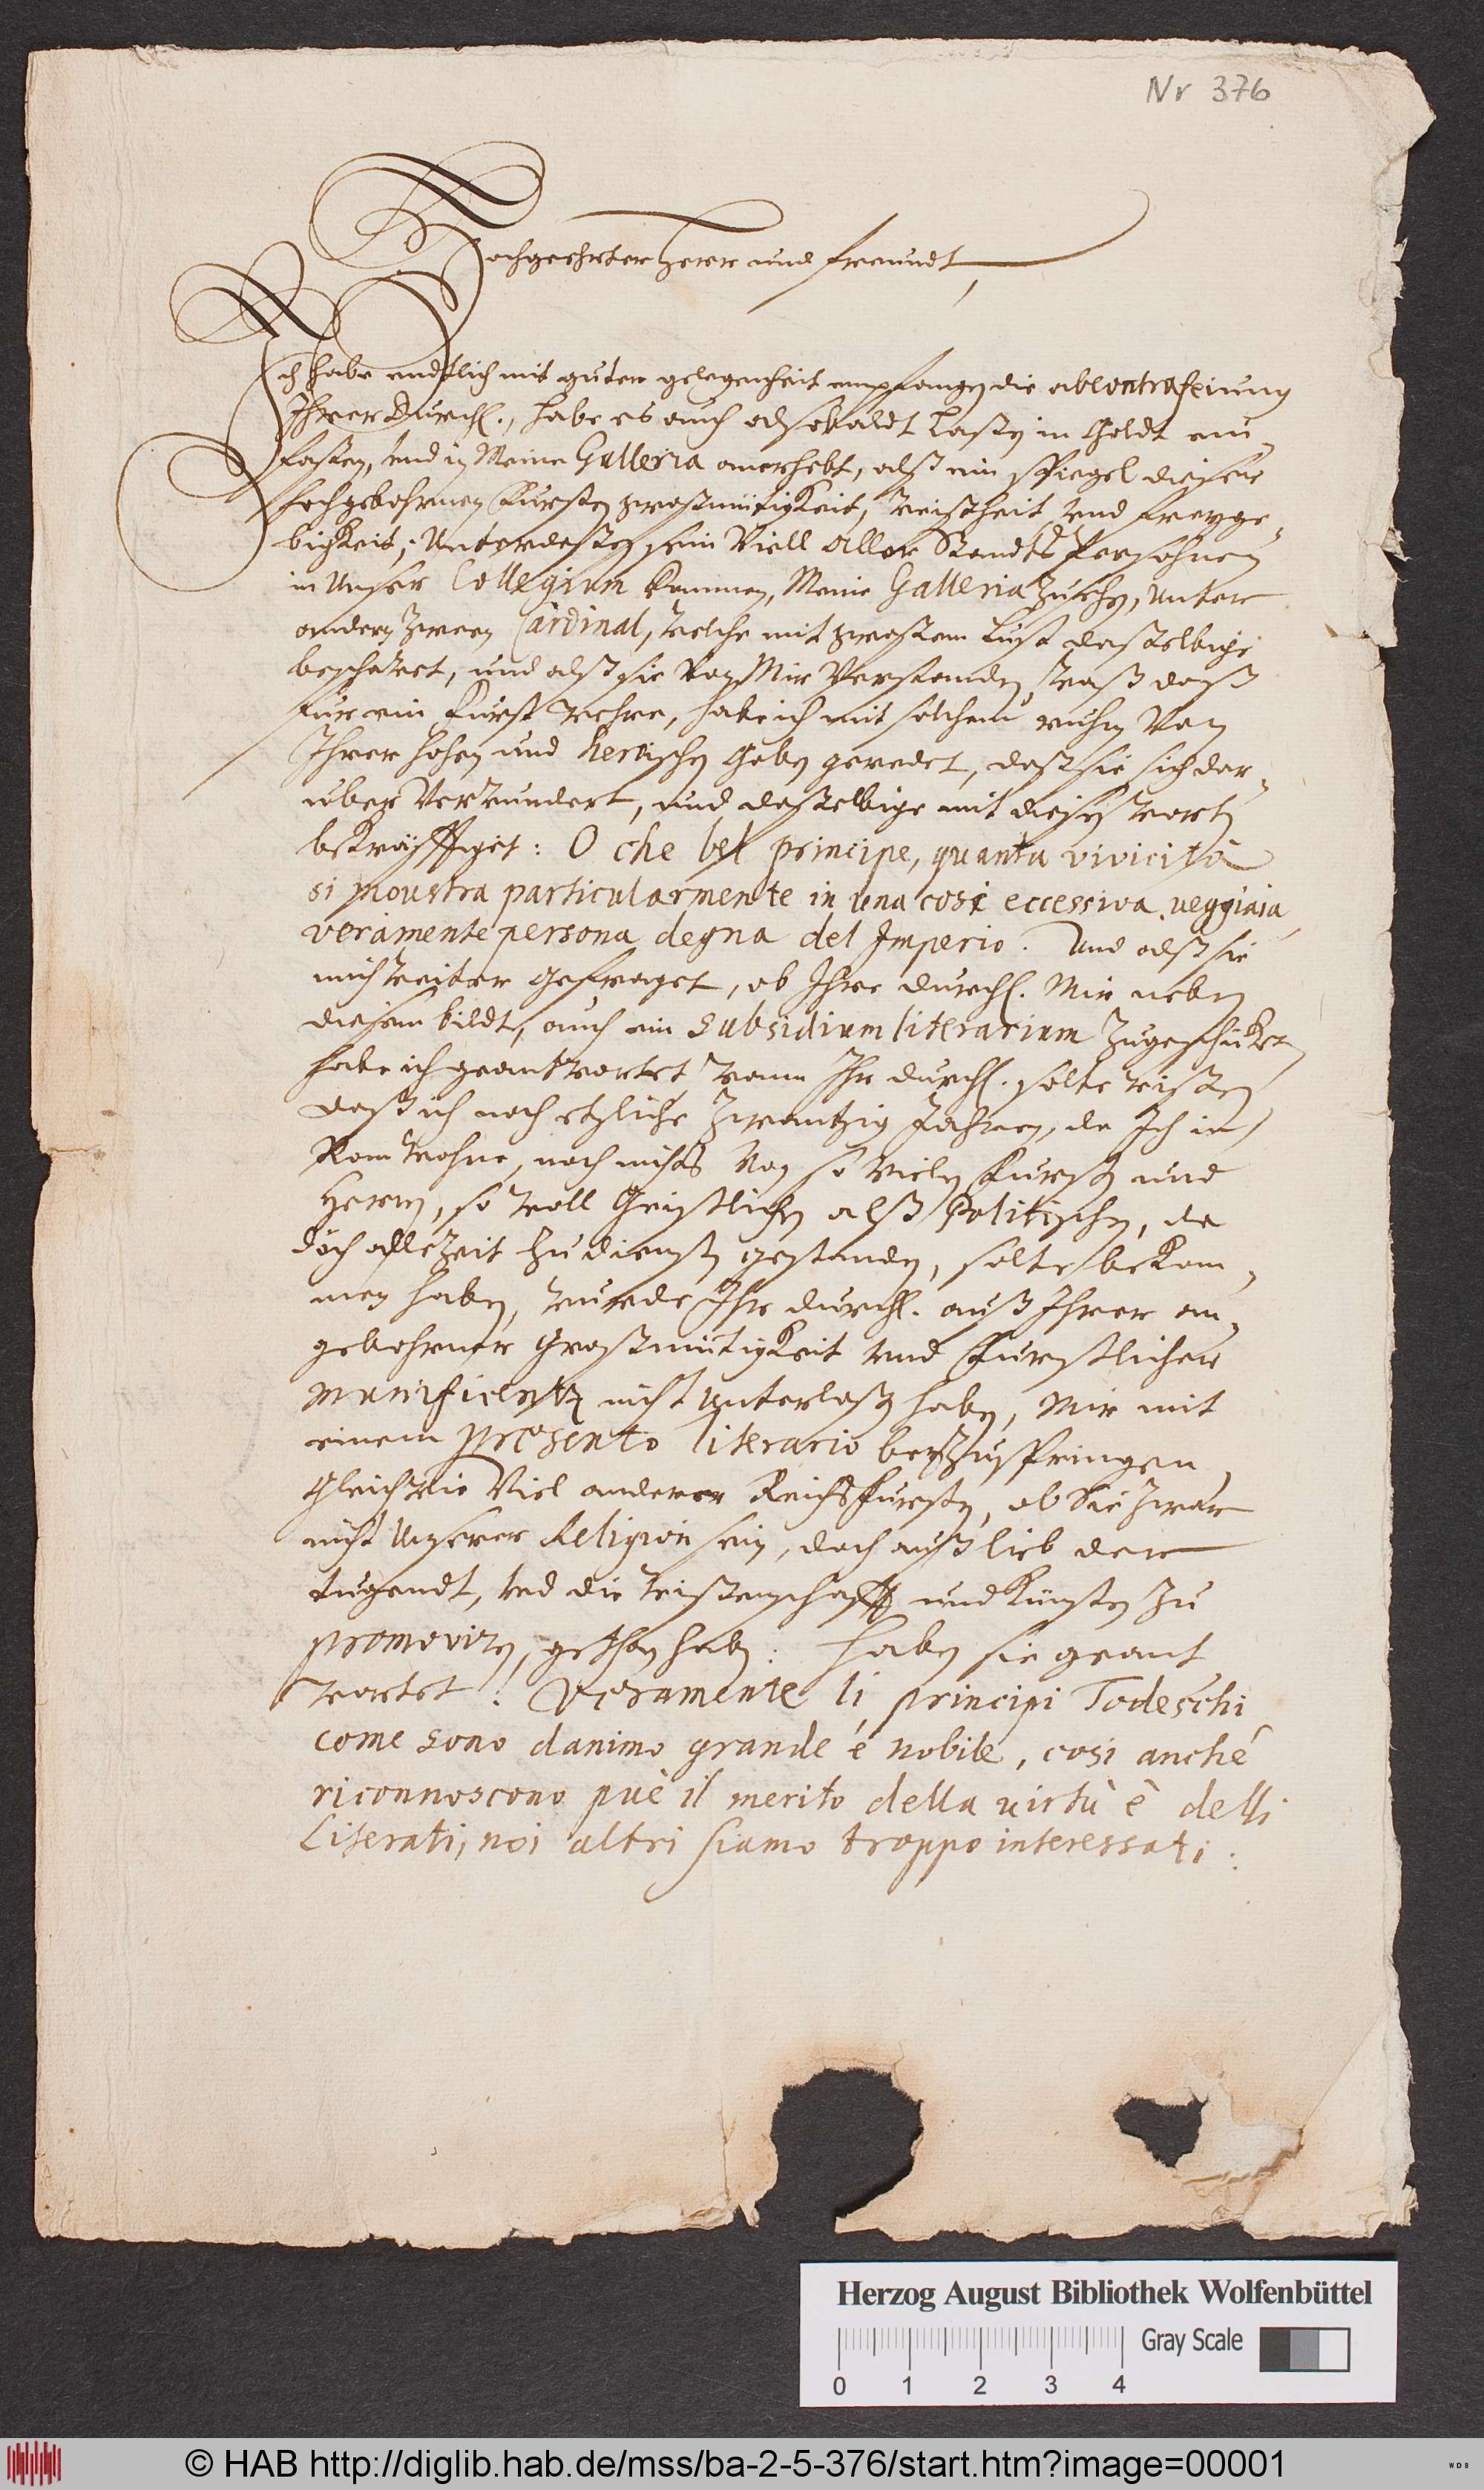 Nr 376
Hochgeehrter Herr und freundt,
Ich habe endtlich mit guter gelegenheit empfangen die abkontrafeiung
Ihrer Durchl., habe es auch alsobaldt lasen in Goldt ein¬
fasen, und in Meine Galleria auserhebt, alß ein spiegel dieser
hochgebohrnen Fursten grosmütigkeit, weistheit und freyge¬
bichkeit; Unterdesen sein Viell Aller Standts Persohnen
in Unser Collegium kommen, Meine Galleria zusehen, Unter
andern zween Cardinal, welche mit grostem lust dasselbige
beschawet, und alß sie von Mir Verstanden, waß daß
fur ein Furst wehre, habe ich mit solchem ruhm Von
Ihrer hohen und heroischen Gaben geredet, dass sie sich dar¬
uber Verwundert, und dasselbige mit diesen worten
bekräfftiget: O che bel principe, quanta vivicità
si moustra particularmente in una cosi eccessiva veggiaia,
veramente persona degna del Imperio. Und alß sie
mich weiter gefraget, ob Ihre Durchl. Mir neben
diesem bildt, auch ein subsidium literarium zugeschickt,
habe ich geantwortet wann Ihr Durchl. solte wissen
daß ich nach etzliche zwantzig Jahren, da Ich in
Rom wohne, noch nichts Von so vielen Fursten und
Herren, so woll Geistlichen alß Politischen, da
doch alle zeit zu diensten gestanden, solte bekom¬
men haben, wurde Ihr Durchl. auß Ihrer an¬
gebohrner Grosmütigkeit und Furstlicher
munificentz nicht unterlasen haben, Mir mit
einem presento literario beyzuspringen,
Gleich wie Viel anderer Reichsfursten, ob Sie zwar
nicht Unserer Religion sein, doch auß lieb der
tugendt, und die wissenschafft und Künsten zu
promoviren, gethan haben: haben sie geant
wortet: Veramente li principi Todeschi
come sono danimo grande é nobile, cosi anché
riconnoscono puè il merito della virtù è delli
Literati, noi altri siamo troppo interessati:
Herzog August Bibliothek Wolfenbüttel
Gray Scale
0 1 2 3 4
© HAB http://diglib.hab.de/mss/ba-2-5-376/start.htm?image=00001
WDB